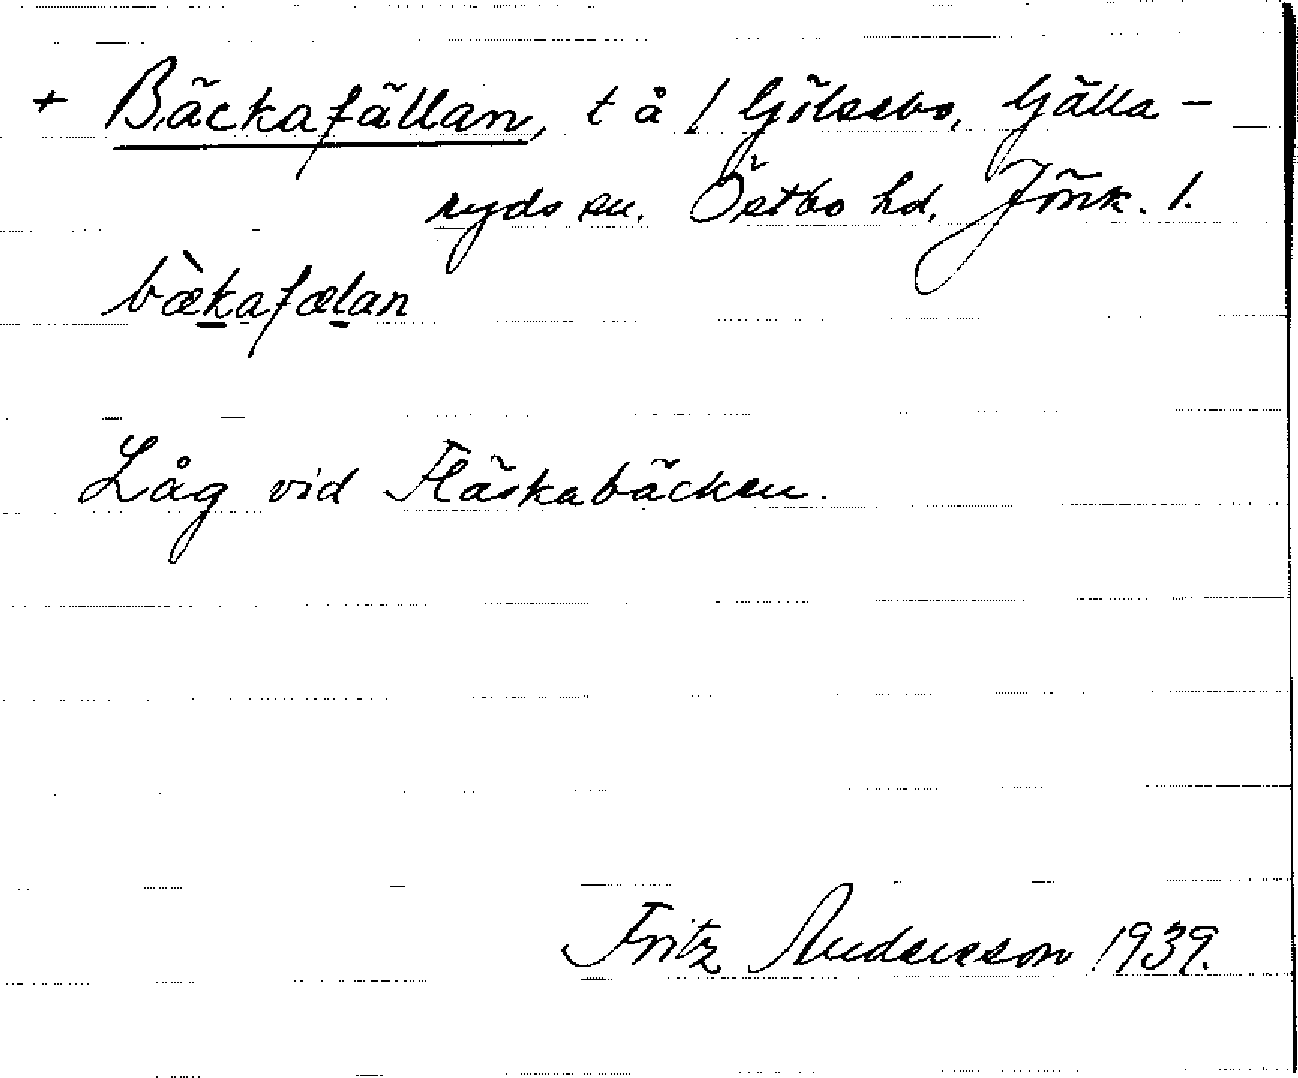 + Bäckafällan, t å / Gölsebo, Gälla-
ryds sn. Östbo hd, Jönk. l.
bæ̀kafælan
Låg vid Fläskabäcken.
Fritz Andersson 1939.